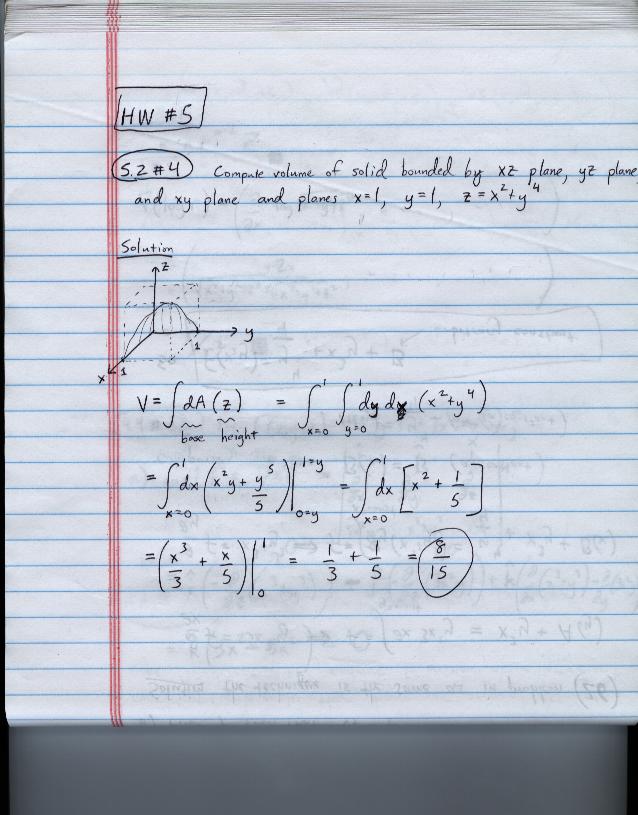 HW #5
5.2 #4 Compute volume of solid bounded by xz plane, yz plane
and xy plane and planes x=1, y=1, z=x²+y⁴
Solution
z
y
1
x 1
V = ∫ dA (z) = ∫_{x=0}^{1} ∫_{y=0}^{1} dy dx (x²+y⁴)
base height
= ∫_{x=0}^{1} dx (x²y + y⁵/5) |_{0=y}^{1=y} = ∫_{x=0}^{1} dx [x² + 1/5]
= (x³/3 + x/5) |_0^1 = 1/3 + 1/5 = 8/15